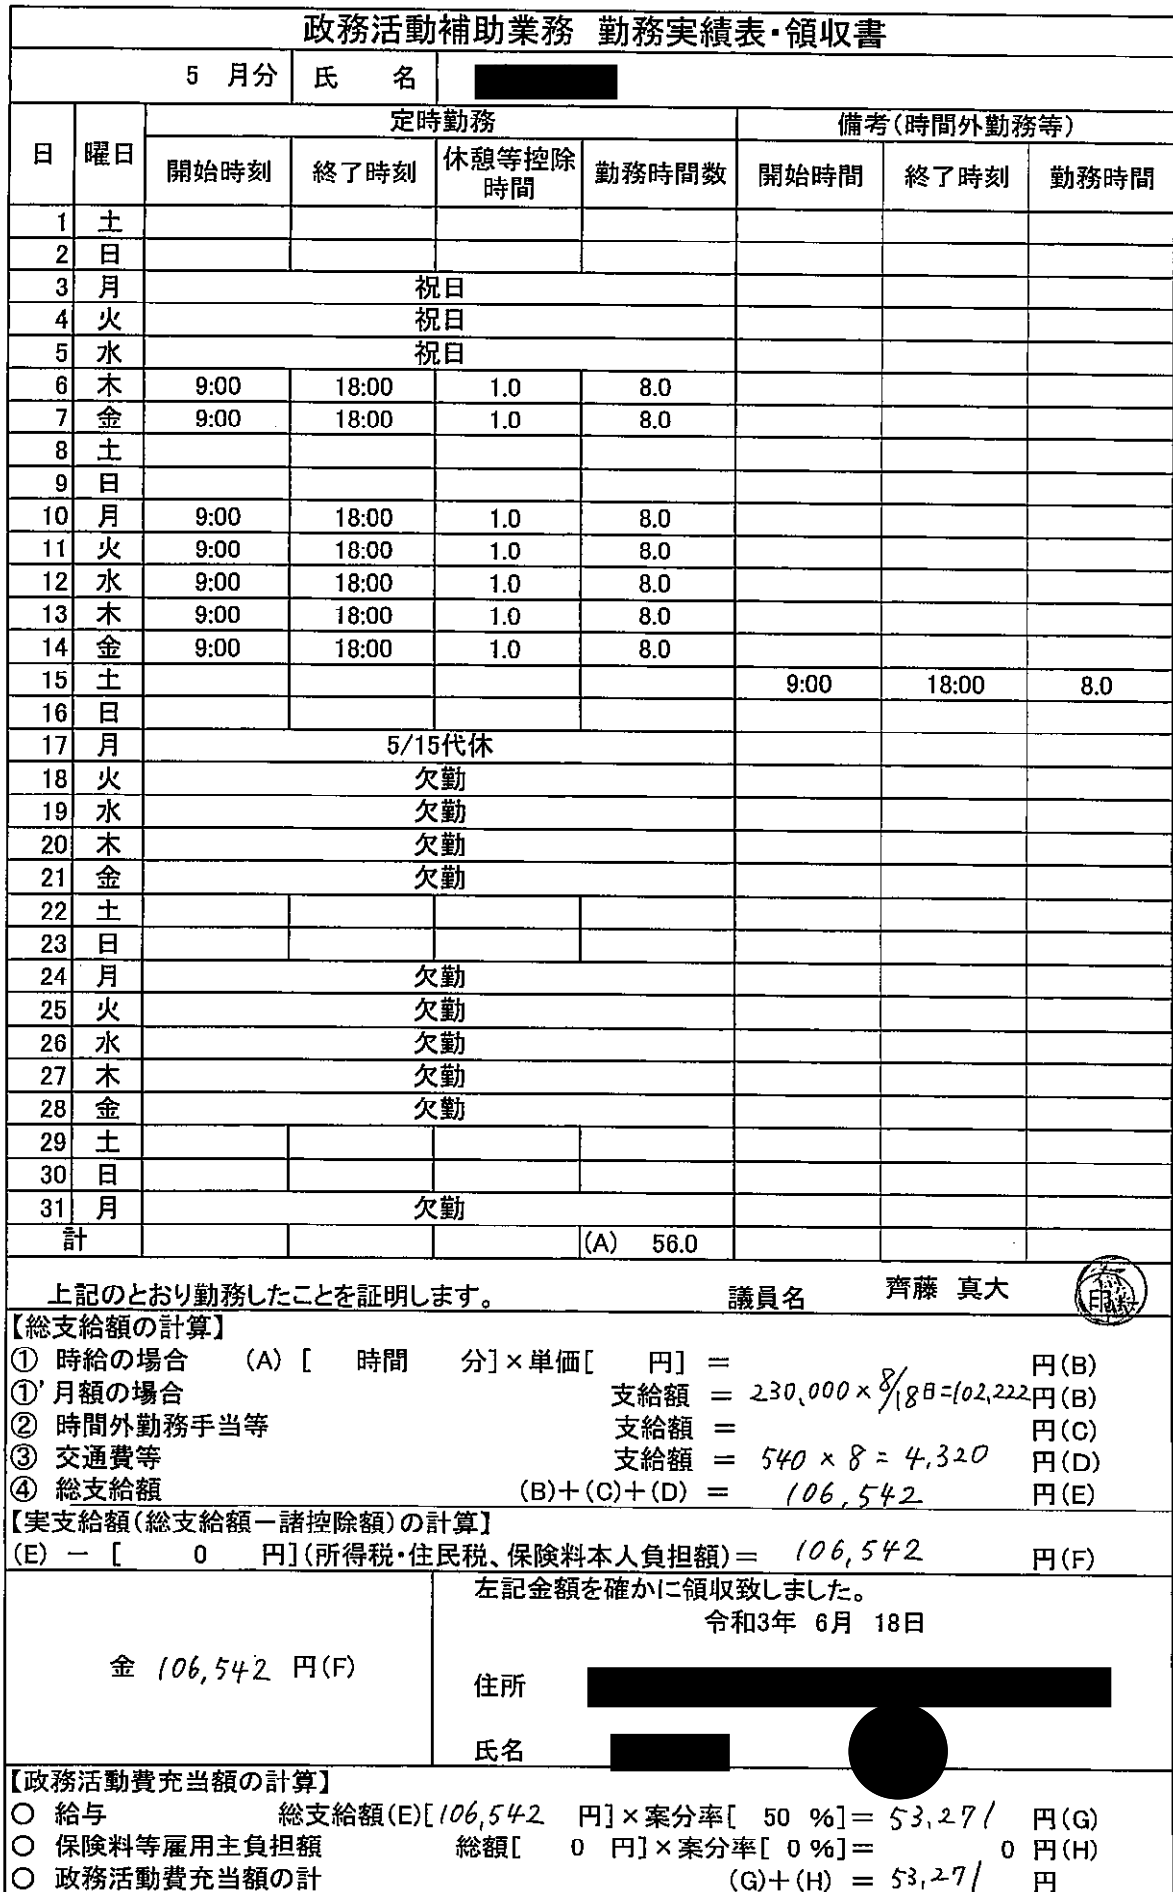 政務活動補助業務 勤務実績表・領収書
5 月分 氏 名
日 曜日 定時勤務 備考(時間外勤務等)
開始時刻 終了時刻 休憩等控除時間 勤務時間数 開始時間 終了時刻 勤務時間
1 土
2 日
3 月 祝日
4 火 祝日
5 水 祝日
6 木 9:00 18:00 1.0 8.0
7 金 9:00 18:00 1.0 8.0
8 土
9 日
10 月 9:00 18:00 1.0 8.0
11 火 9:00 18:00 1.0 8.0
12 水 9:00 18:00 1.0 8.0
13 木 9:00 18:00 1.0 8.0
14 金 9:00 18:00 1.0 8.0
15 土 9:00 18:00 8.0
16 日
17 月 5/15代休
18 火 欠勤
19 水 欠勤
20 木 欠勤
21 金 欠勤
22 土
23 日
24 月 欠勤
25 火 欠勤
26 水 欠勤
27 木 欠勤
28 金 欠勤
29 土
30 日
31 月 欠勤
計 (A) 56.0
上記のとおり勤務したことを証明します。 議員名 齊藤 真大
【総支給額の計算】
① 時給の場合 (A) [ 時間 分]×単価[ 円] = 円(B)
①' 月額の場合 支給額 = 230,000×8/18日=102,222円(B)
② 時間外勤務手当等 支給額 = 円(C)
③ 交通費等 支給額 = 540×8=4,320 円(D)
④ 総支給額 (B)+(C)+(D) = 106,542 円(E)
【実支給額(総支給額－諸控除額)の計算】
(E) － [ 0 円](所得税・住民税、保険料本人負担額)= 106,542 円(F)
左記金額を確かに領収致しました。
令和3年 6月 18日
金 106,542 円(F)
住所
氏名
【政務活動費充当額の計算】
○ 給与 総支給額(E)[106,542 円]×案分率[ 50 %]= 53,271 円(G)
○ 保険料等雇用主負担額 総額[ 0 円]×案分率[ 0 %]= 0 円(H)
○ 政務活動費充当額の計 (G)+(H) = 53,271 円